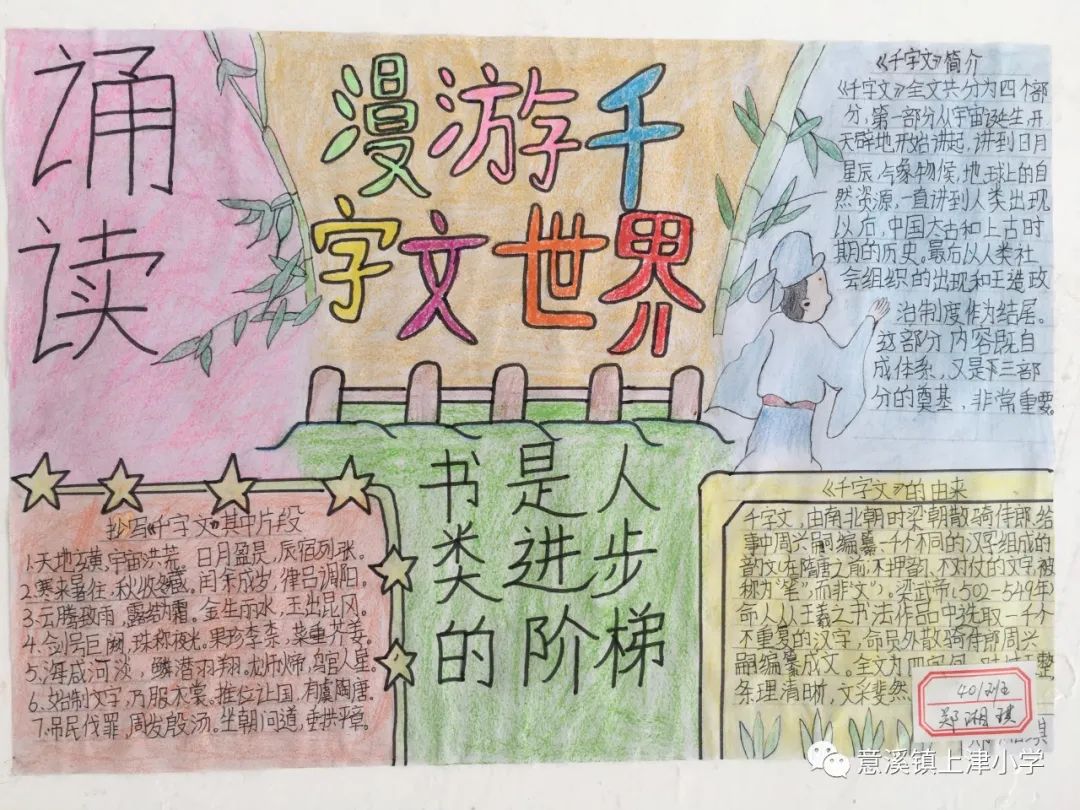 诵
读
漫游千
字文世界
《千字文》简介
《千字文》全文共分为四个部
分，第一部分从宇宙诞生、开
天辟地开始讲起，讲到日月
星辰、气象物候，地球上的自
然资源，一直讲到人类出现
以后，中国太古和上古时
期的历史。最后以人类社
会组织的出现和王造政
治制度作为结尾。
这部分内容既自
成体系，又是下三部
分的奠基，非常重要。
书是人
类进步
的阶梯
抄写《千字文》其中片段
1.天地玄黄，宇宙洪荒。日月盈昃，辰宿列张。
2.寒来暑往，秋收冬藏。闰余成岁，律吕调阳。
3.云腾致雨，露结为霜。金生丽水，玉出昆冈。
4.剑号巨阙，珠称夜光。果珍李柰，菜重芥姜。
5.海咸河淡，鳞潜羽翔。龙师火帝，鸟官人皇。
6.始制文字，乃服衣裳。推位让国，有虞陶唐。
7.吊民伐罪，周发殷汤。坐朝问道，垂拱平章。
《千字文》的由来
千字文，由南北朝时梁朝散骑侍郎、给
事中周兴嗣编纂、一千个不同的汉字组成的
韵文(在隋唐之前，不押韵、不对仗的文字，被
称为"笔"，而非"文")。梁武帝(502-549年)
命人从王羲之书法作品中选取一千个
不重复的汉字，命员外散骑侍郎周兴
嗣编纂成文。全文为四字句，对仗工整，
条理清晰，文采斐然
401班
郑湘琪
琪
意溪镇上津小学